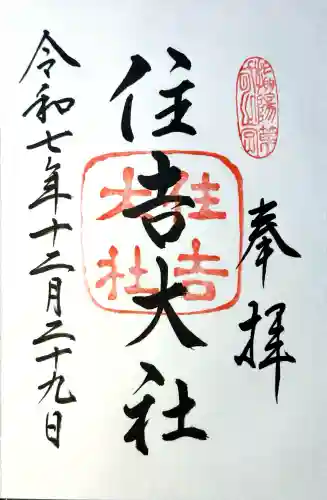 奉拝
住吉大社
住吉
大社
令和七年十二月二十九日